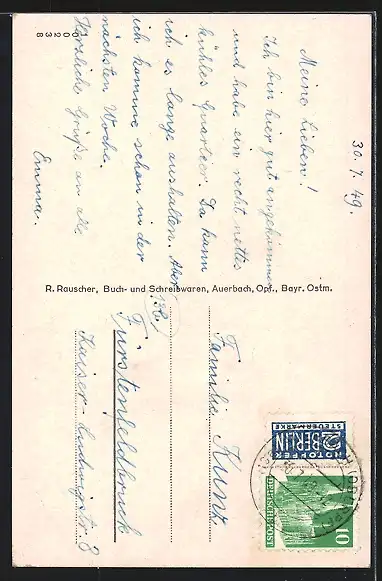 30.7.49.
Meine Lieben!
Ich bin hier gut angekommen
und habe ein recht nettes
kühles Quartier. Da kann
ich es lange aushalten. Aber
ich komme schon in der
nächsten Woche.
Herzliche Grüße an alle
Emma.
0238
R. Rauscher, Buch- und Schreibwaren, Auerbach, Opf., Bayr. Ostm.
Familie Kunz
13b
Fürstenfeldbruck
Kaiser-Ludwigstr. 8
NOTOPFER
2 BERLIN
STEUERMARKE
DEUTSCHE POST
10